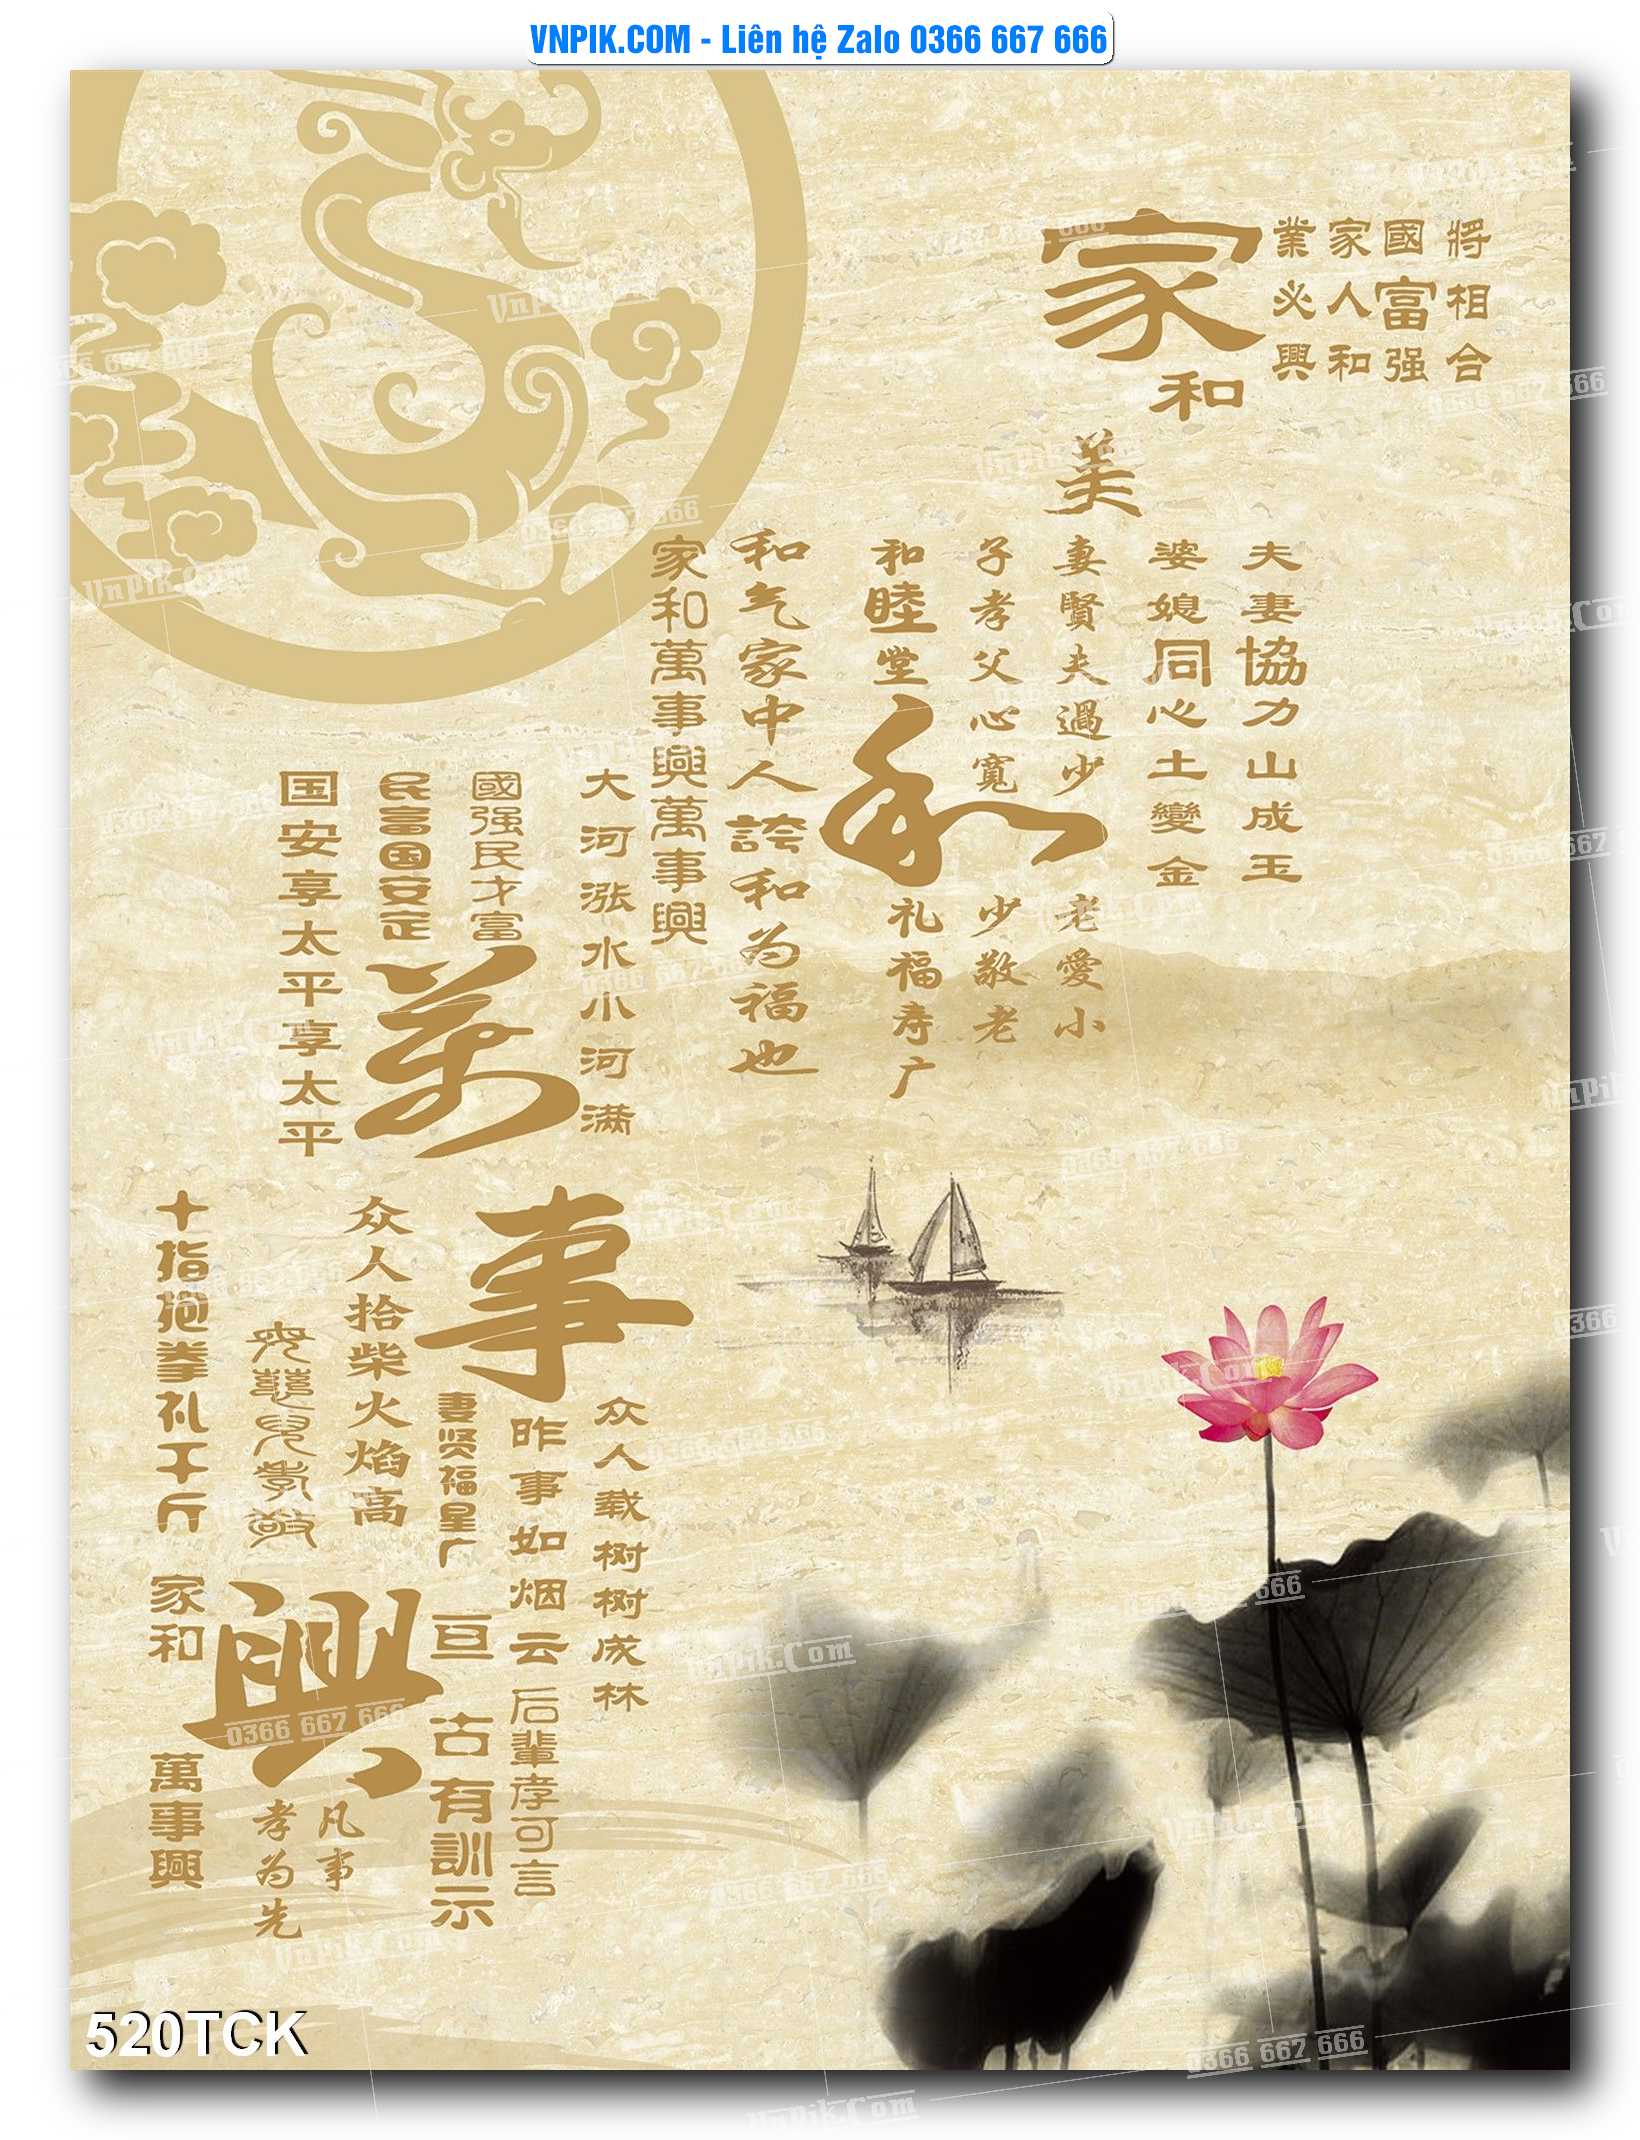 VNPIK.COM - Liên hệ Zalo 0366 667 666
將相合
國富强
家人和
業必興
家
和
美
夫妻協力山成玉
婆媳同心土變金
妻賢夫過少
老愛小
子孝父心寬
少敬老
和睦堂
和
礼福寿广
和气家中人誇和为福也
家和萬事興萬事興
大河涨水小河满
國强民才富
民富国安定
国安享太平享太平
万
事
众人载树树成林
昨事如烟云
后輩孝可言
妻贤福星广
亘古有訓示
众人拾柴火焰高
十指抱拳礼千斤
家和
興
萬事興
凡事
孝为先
520TCK
VnPik.Com
0366 667 666